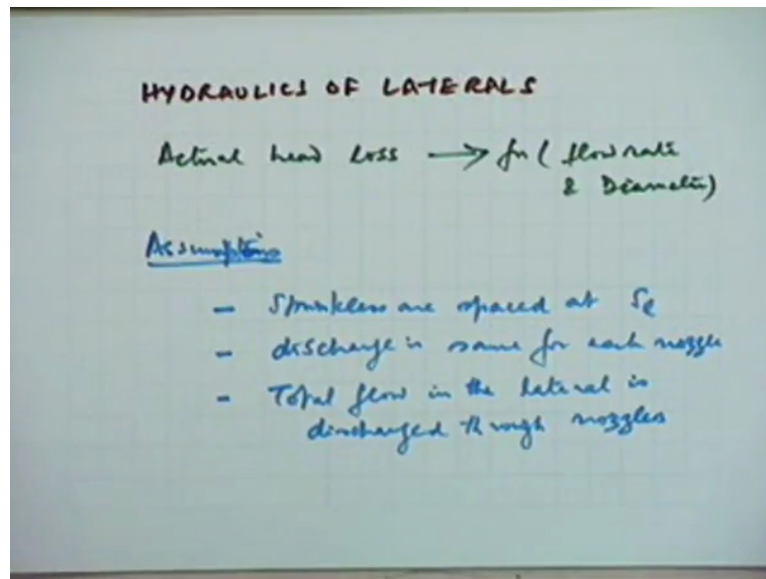 HYDRAULICS OF LATERALS
Actual head Loss → fn ( flow rate
& Diameter)
Assumptions
- Sprinklers are spaced at Sl
- discharge is same for each nozzle
- Total flow in the lateral is
discharged through nozzles